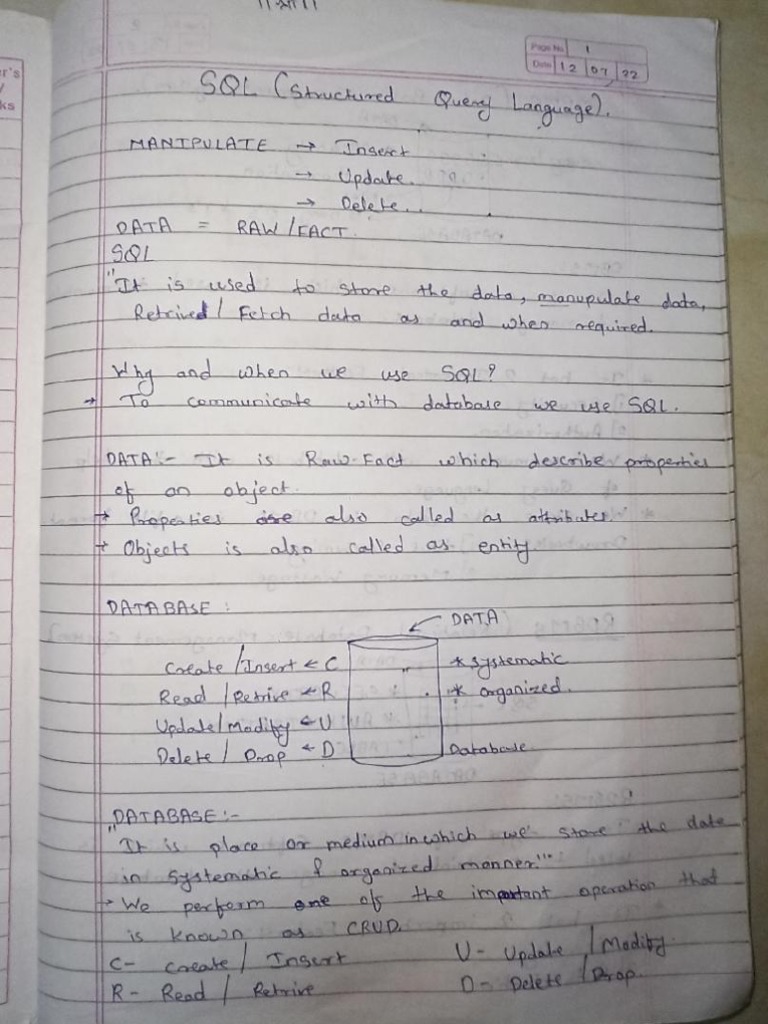 ॥श्री॥
Page No. 1
Date 12 07 22
SQL (Structured Query Language).
MANIPULATE → Insert
→ Update.
→ Delete..
DATA = RAW/FACT.
SQL
"It is used to store the data, manupulate data,
Retrived/ Fetch data as and when required.
Why and when we use SQL?
→ To communicate with database we use SQL.
DATA:- It is Raw Fact which describe properties
of an object.
→ Properties are also called as attributes.
→ Objects is also called as entity
DATABASE :
DATA
Create/Insert ← C
* Systematic
Read /Retrive ← R
* organized.
Update/Modify ← U
Delete/ Drop ← D
Database
DATABASE:-
"It is place or medium in which we store the data
in Systematic & organized manner"
→ We perform one of the important operation that
is known as CRUD.
C- Create/ Insert
U- Update /Modify.
R- Read / Retrive
D- Delete /Drop.